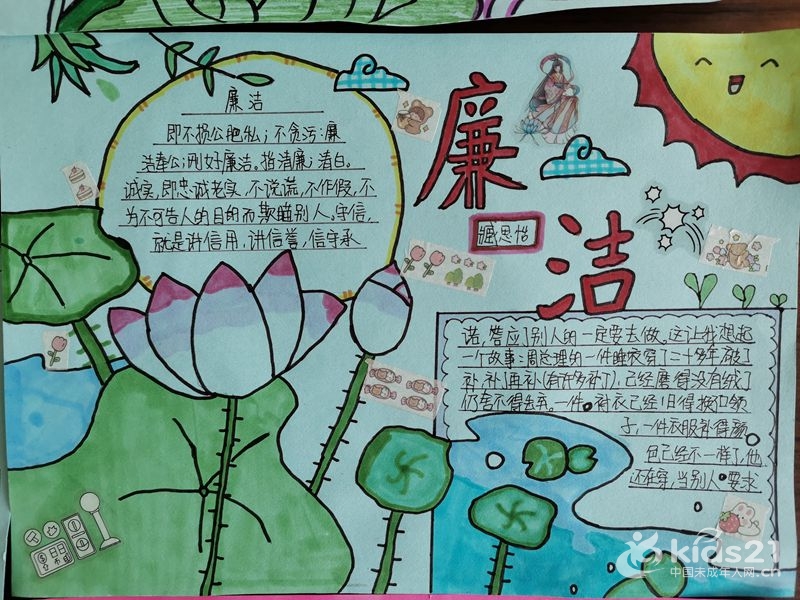 廉洁
廉洁
臧思怡
即不损公肥私；不贪污；廉
洁奉公；刚好廉洁。指清廉；清白。
诚实，即忠诚老实，不说谎，不作假，不
为不可告人的目的而欺瞒别人。守信，
就是讲信用，讲信誉，信守承
诺，答应了别人的一定要去做。这让我想起
一个故事：周总理的一件睡衣穿了二十多年，破了
补，补了再补（有许多补丁），已经磨得没有绒了
仍舍不得丢弃。一件衬衣已经旧得换扣领
子，一件衣服补得颜
色已经不一样了，他
还在穿，当别人要求
kids21
中国未成年人网.cn